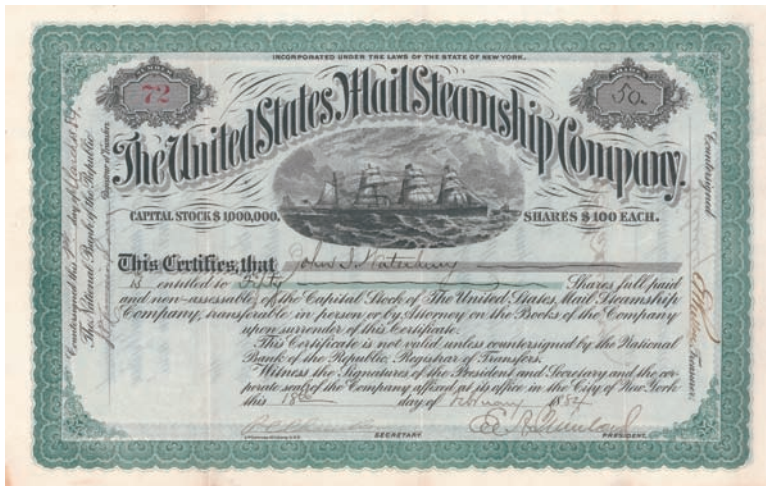 INCORPORATED UNDER THE LAWS OF THE STATE OF NEW YORK.
NUMBER
72
SHARES
50.
The United States Mail Steamship Company.
CAPITAL STOCK $1000,000.
SHARES $100 EACH.
This Certifies, that John I. Waterbury
is entitled to Fifty Shares full paid
and non-assessable of the Capital Stock of The United States Mail Steamship
Company, transferable in person or by Attorney on the Books of the Company
upon surrender of this Certificate.
This Certificate is not valid unless countersigned by the National
Bank of the Republic, Registrar of Transfers.
Witness the Signatures of the President and Secretary and the cor-
porate seal of the Company affixed at its office in the City of New York
this 18th day of February 1884
SECRETARY
PRESIDENT.
Countersigned this day of March 1884
The National Bank of the Republic
Registrar of Transfers
Countersigned
Treasurer